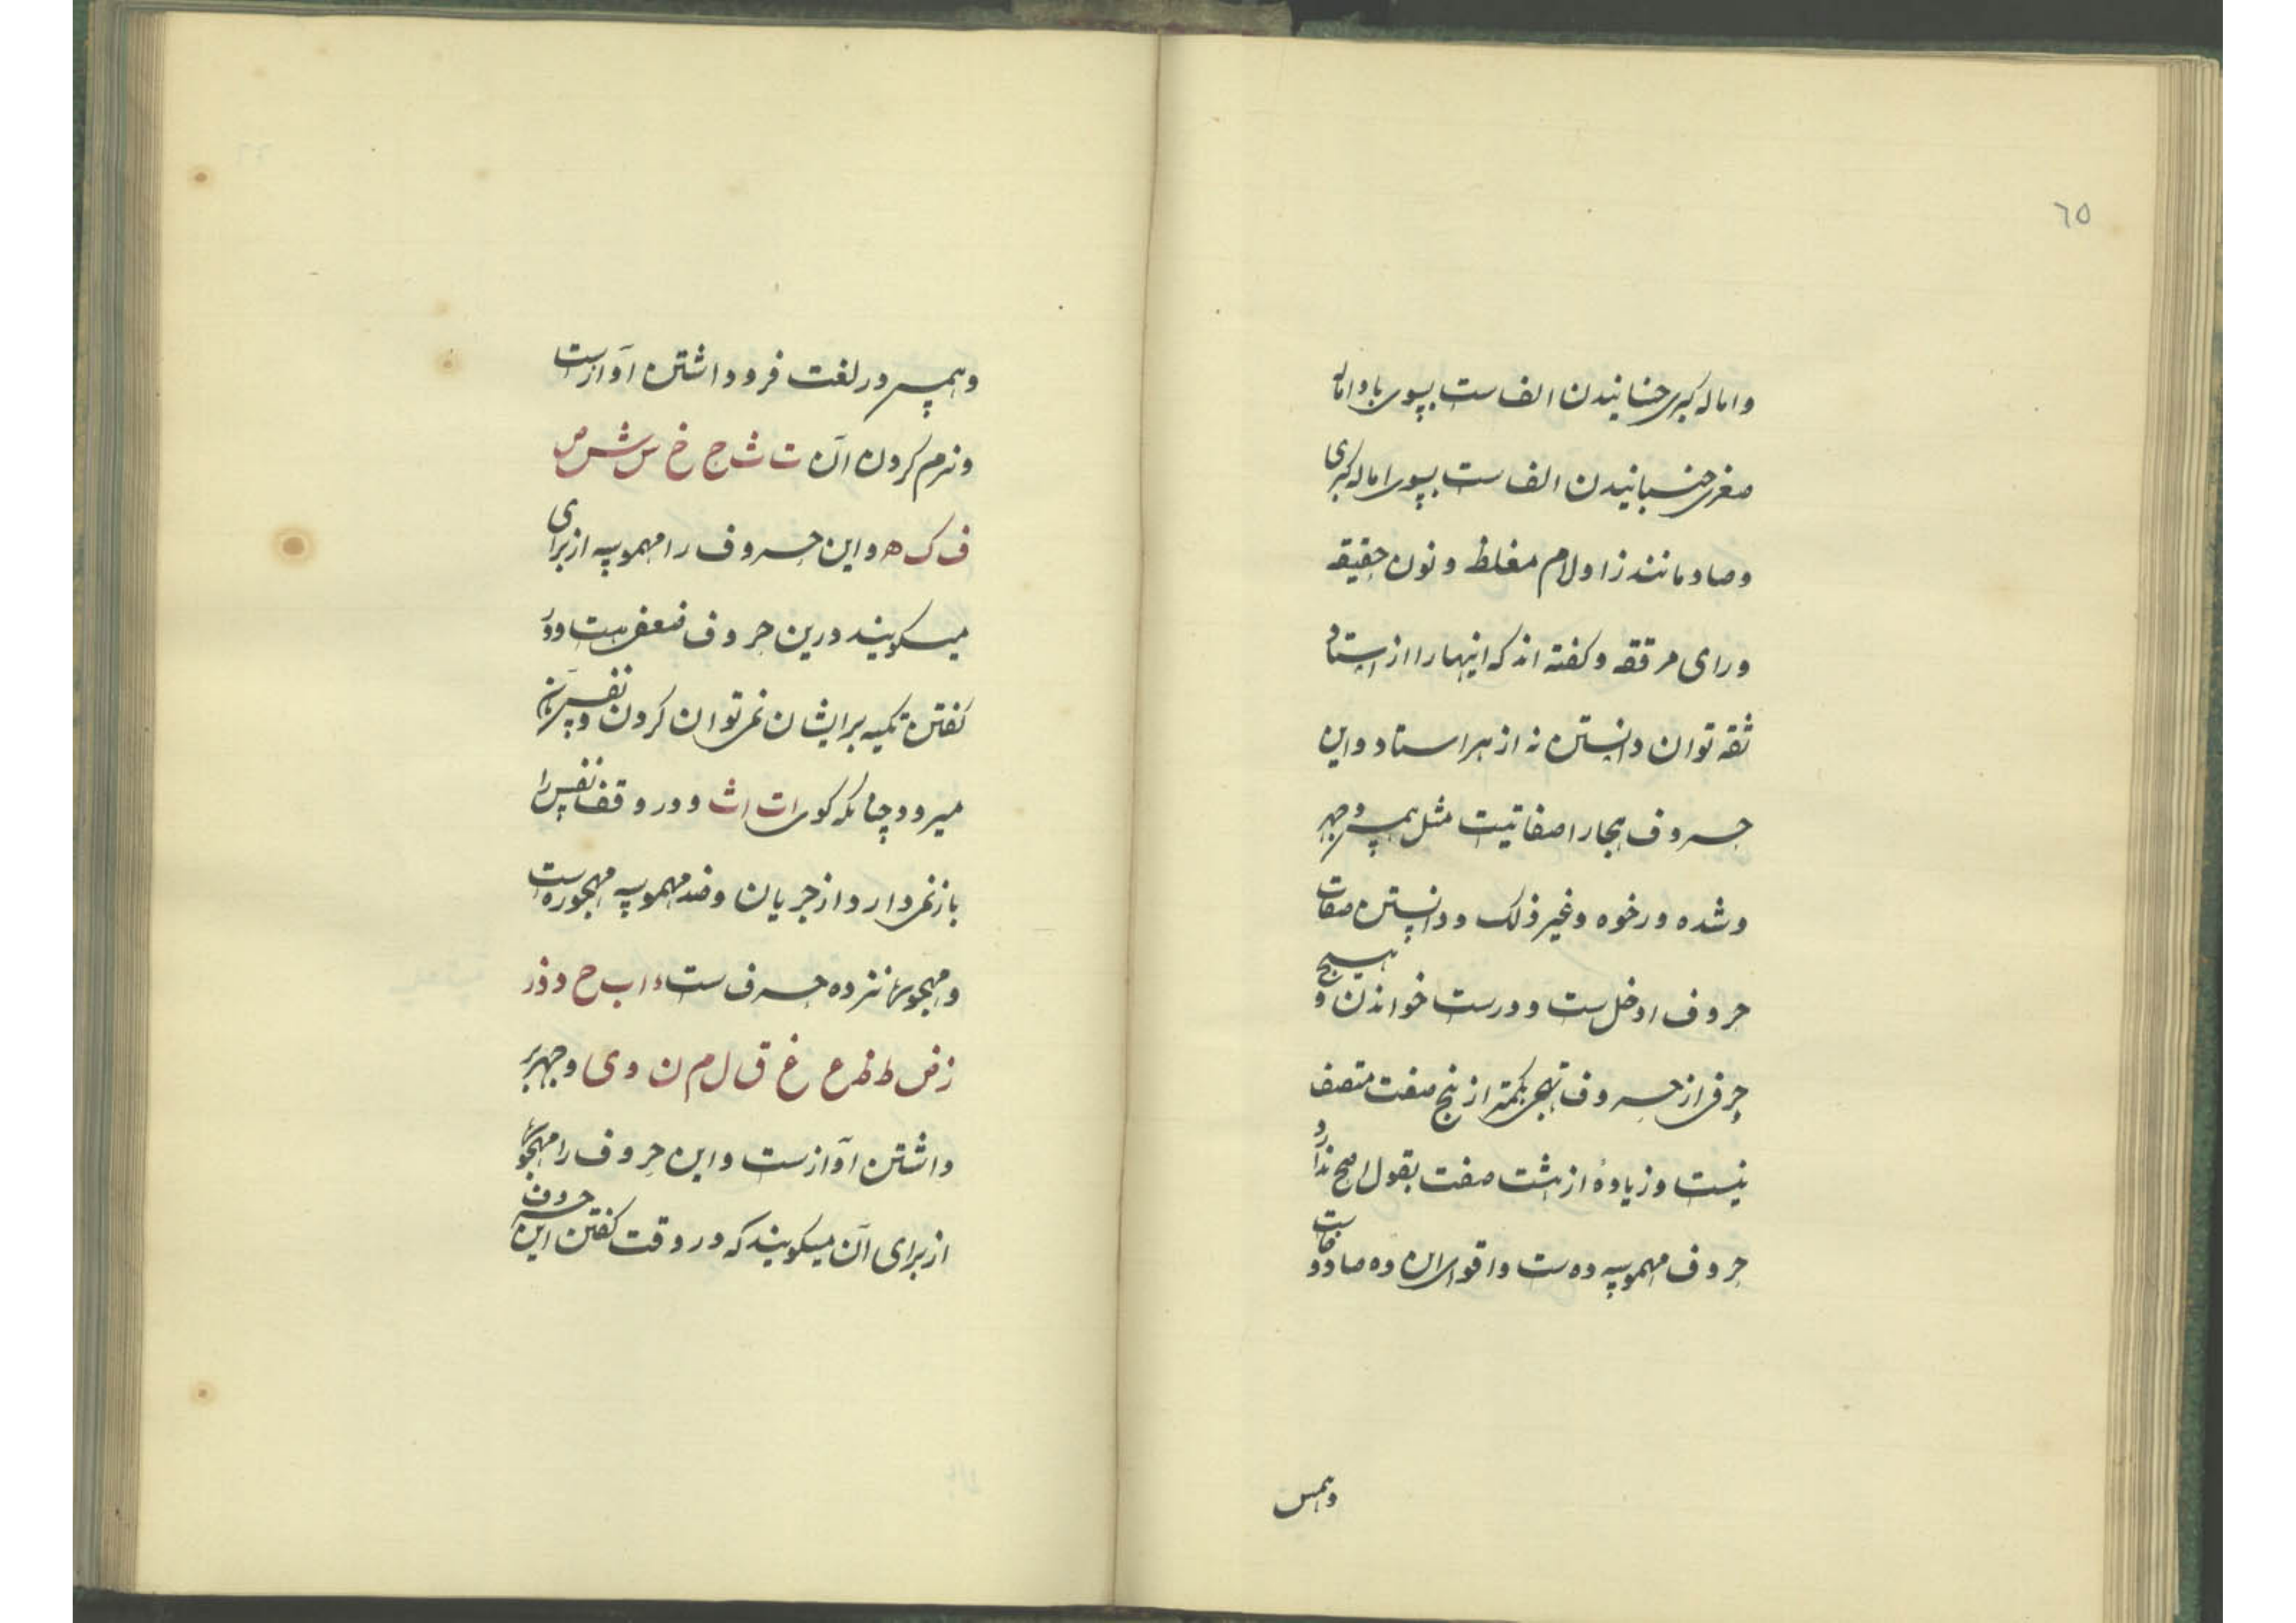 ٦٥
و اماله کبری جنبانیدن الف است بسوی یا و اماله
صغری جنبانیدن الف است بسوی اماله کبری
و صاد مانند زا و لام مغلظ و نون خفیفه
و رای مرققه و گفته اند که اینها را از استاد
ثقه توان دانستن نه از هر استاد و این
حروف هجا را صفاتیست مثل همس و جهر
و شده و رخوه و غیر ذلک و دانستن صفات
حروف ادخل ست و درست خواندن و هیچ
حرفی از حروف تهجی بکمتر از پنج صفت متصف
نیست و زیاده از هشت صفت بقول اصح ندارد
حروف مهموسه ده ست و اقوای این ده صاد و
وهمس
و همس در لغت فرو داشتن آواز است
و نرم کردن آن ت ث ح خ س ش ص
ف ک ه و این حروف را مهموسه از برای
میگویند درین حروف ضعفی هست و در
گفتن تکیه بر ایشان نمی توان کردن و نفس
میرود چنانکه گوی ات اث و در وقف نفس را
باز نمی دارد از جریان و ضد مهموسه مجهوره است
و مجهوره نزده حرف ست ء ا ب ج د ذ ر
ز ض ط ظ ع غ ق ل م ن و ی و جهر بر
داشتن آواز ست و این حروف را مجهوره
از برای آن میگویند که در وقت گفتن این حروف